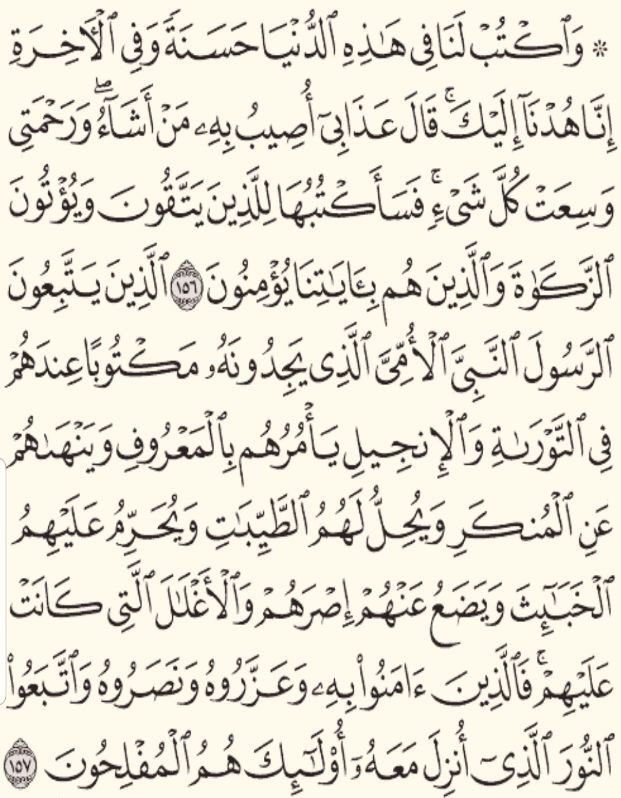 ۞ وَٱكۡتُبۡ لَنَا فِي هَٰذِهِ ٱلدُّنۡيَا حَسَنَةٗ وَفِي ٱلۡأٓخِرَةِ
إِنَّا هُدۡنَآ إِلَيۡكَۚ قَالَ عَذَابِيٓ أُصِيبُ بِهِۦ مَنۡ أَشَآءُۖ وَرَحۡمَتِي
وَسِعَتۡ كُلَّ شَيۡءٖۚ فَسَأَكۡتُبُهَا لِلَّذِينَ يَتَّقُونَ وَيُؤۡتُونَ
ٱلزَّكَوٰةَ وَٱلَّذِينَ هُم بِـَٔايَٰتِنَا يُؤۡمِنُونَ ١٥٦ ٱلَّذِينَ يَتَّبِعُونَ
ٱلرَّسُولَ ٱلنَّبِيَّ ٱلۡأُمِّيَّ ٱلَّذِي يَجِدُونَهُۥ مَكۡتُوبًا عِندَهُمۡ
فِي ٱلتَّوۡرَىٰةِ وَٱلۡإِنجِيلِ يَأۡمُرُهُم بِٱلۡمَعۡرُوفِ وَيَنۡهَىٰهُمۡ
عَنِ ٱلۡمُنكَرِ وَيُحِلُّ لَهُمُ ٱلطَّيِّبَٰتِ وَيُحَرِّمُ عَلَيۡهِمُ
ٱلۡخَبَٰٓئِثَ وَيَضَعُ عَنۡهُمۡ إِصۡرَهُمۡ وَٱلۡأَغۡلَٰلَ ٱلَّتِي كَانَتۡ
عَلَيۡهِمۡۚ فَٱلَّذِينَ ءَامَنُواْ بِهِۦ وَعَزَّرُوهُ وَنَصَرُوهُ وَٱتَّبَعُواْ
ٱلنُّورَ ٱلَّذِيٓ أُنزِلَ مَعَهُۥٓ أُوْلَٰٓئِكَ هُمُ ٱلۡمُفۡلِحُونَ ١٥٧